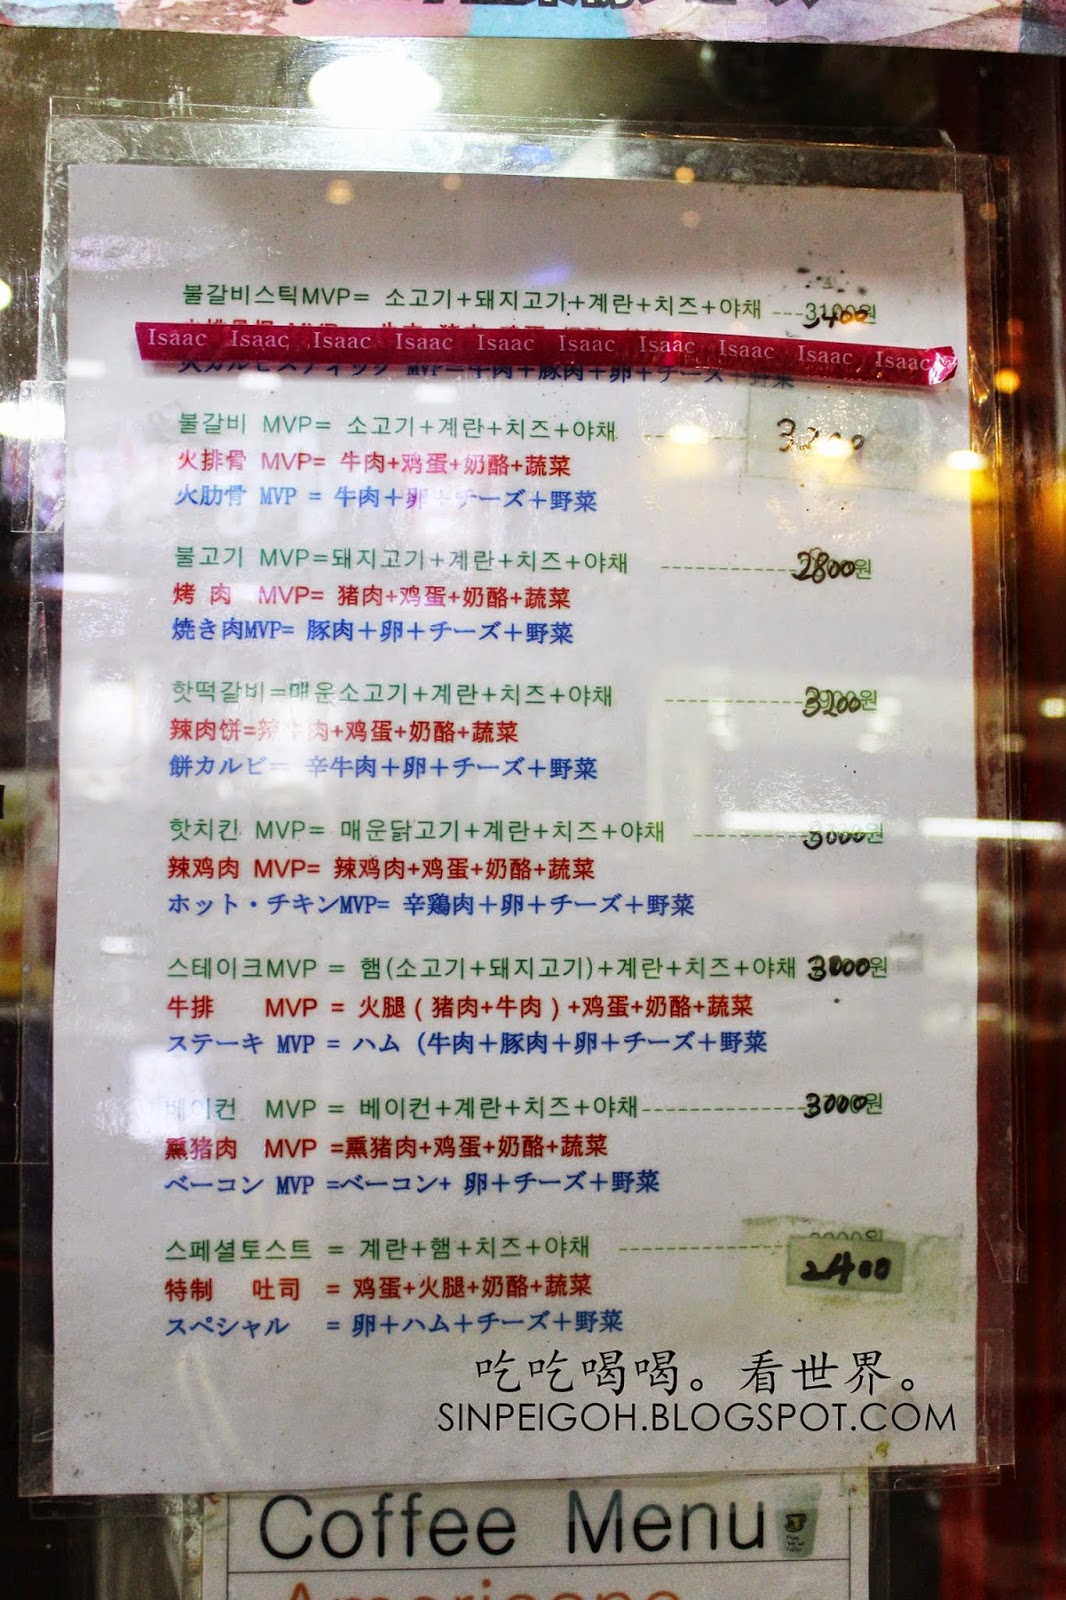 불갈비스틱MVP= 소고기+돼지고기+계란+치즈+야채 ---3400원
Isaac Isaac Isaac Isaac Isaac Isaac Isaac Isaac Isaac Isaac
火カルビスティック MVP=牛肉+豚肉+卵+チーズ+野菜
불갈비 MVP= 소고기+계란+치즈+야채 3200
火排骨 MVP= 牛肉+鸡蛋+奶酪+蔬菜
火肋骨 MVP = 牛肉+卵+チーズ+野菜
불고기 MVP=돼지고기+계란+치즈+야채 -------------2800원
烤 肉 MVP= 猪肉+鸡蛋+奶酪+蔬菜
焼き肉MVP= 豚肉+卵+チーズ+野菜
핫떡갈비=매운소고기+계란+치즈+야채 -------------3200원
辣肉饼=辣牛肉+鸡蛋+奶酪+蔬菜
餅カルビ= 辛牛肉+卵+チーズ+野菜
핫치킨 MVP= 매운닭고기+계란+치즈+야채 ----------3000원
辣鸡肉 MVP= 辣鸡肉+鸡蛋+奶酪+蔬菜
ホット・チキンMVP= 辛鶏肉+卵+チーズ+野菜
스테이크MVP = 햄(소고기+돼지고기)+계란+치즈+야채 3000원
牛排 MVP = 火腿(猪肉+牛肉)+鸡蛋+奶酪+蔬菜
ステーキ MVP = ハム (牛肉+豚肉+卵+チーズ+野菜
베이컨 MVP = 베이컨+계란+치즈+야채---------------3000원
熏猪肉 MVP =熏猪肉+鸡蛋+奶酪+蔬菜
ベーコン MVP =ベーコン+ 卵+チーズ+野菜
스페셜토스트 = 계란+햄+치즈+야채 ---------------- 2400
特制 吐司 = 鸡蛋+火腿+奶酪+蔬菜
スペシャル = 卵+ハム+チーズ+野菜
吃吃喝喝。看世界。
SINPEIGOH.BLOGSPOT.COM
Coffee Menu
Americano